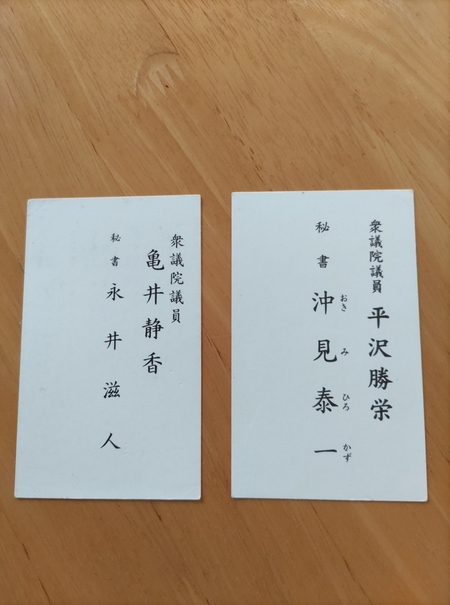 衆議院議員
亀井静香
秘書 永井滋人
衆議院議員 平沢勝栄
秘書 沖見泰一
おき み ひろ かず